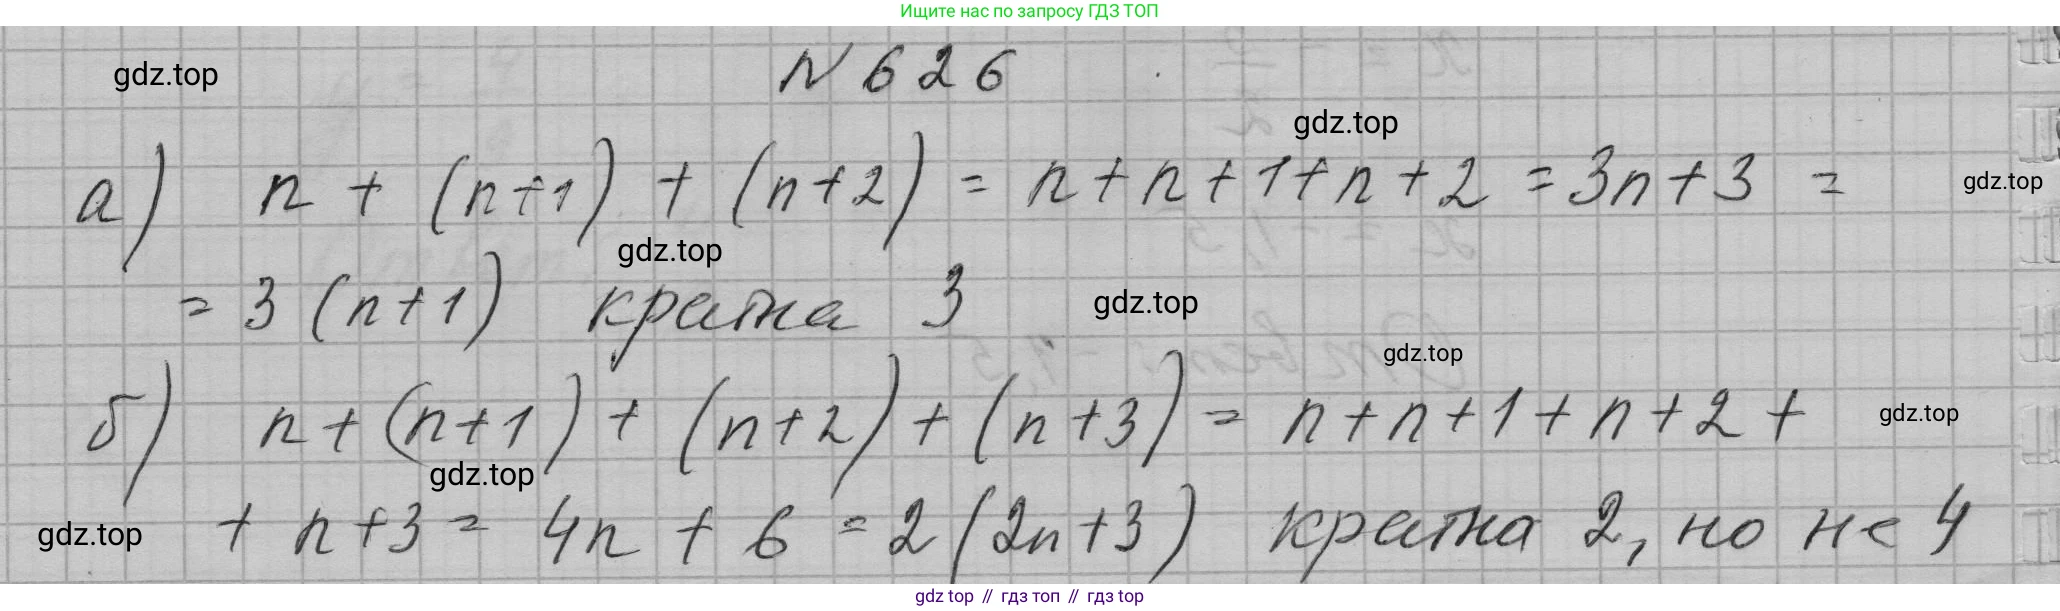 Ищите нас по запросу ГДЗ ТОП
gdz.top
N 626
gdz.top
а) n + (n+1) + (n+2) = n + n + 1 + n + 2 = 3n + 3 =
gdz.top
gdz.top
= 3 (n+1) кратна 3
gdz.top
gdz.top
б) n + (n+1) + (n+2) + (n+3) = n + n + 1 + n + 2 +
gdz.top
gdz.top
+ n + 3 = 4n + 6 = 2 (2n+3) кратна 2, но не 4
gdz.top
gdz top // гдз топ // гдз top